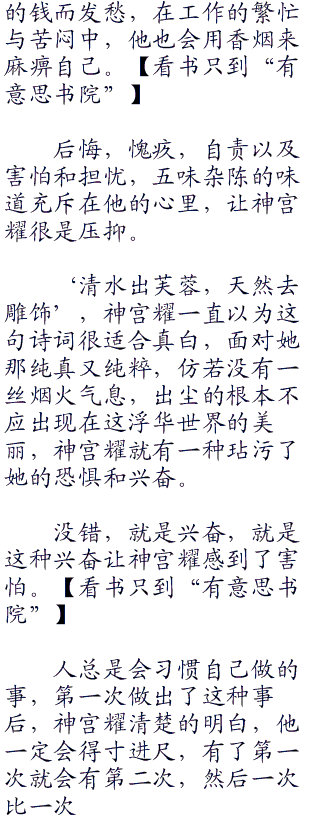 的钱而发愁，在工作的繁忙
与苦闷中，他也会用香烟来
麻痹自己。【看书只到“有
意思书院”】
后悔，愧疚，自责以及
害怕和担忧，五味杂陈的味
道充斥在他的心里，让神宫
耀很是压抑。
‘清水出芙蓉，天然去
雕饰’，神宫耀一直以为这
句诗词很适合真白，面对她
那纯真又纯粹，仿若没有一
丝烟火气息，出尘的根本不
应出现在这浮华世界的美
丽，神宫耀就有一种玷污了
她的恐惧和兴奋。
没错，就是兴奋，就是
这种兴奋让神宫耀感到了害
怕。【看书只到“有意思书
院”】
人总是会习惯自己做的
事，第一次做出了这种事
后，神宫耀清楚的明白，他
一定会得寸进尺，有了第一
次就会有第二次，然后一次
比一次